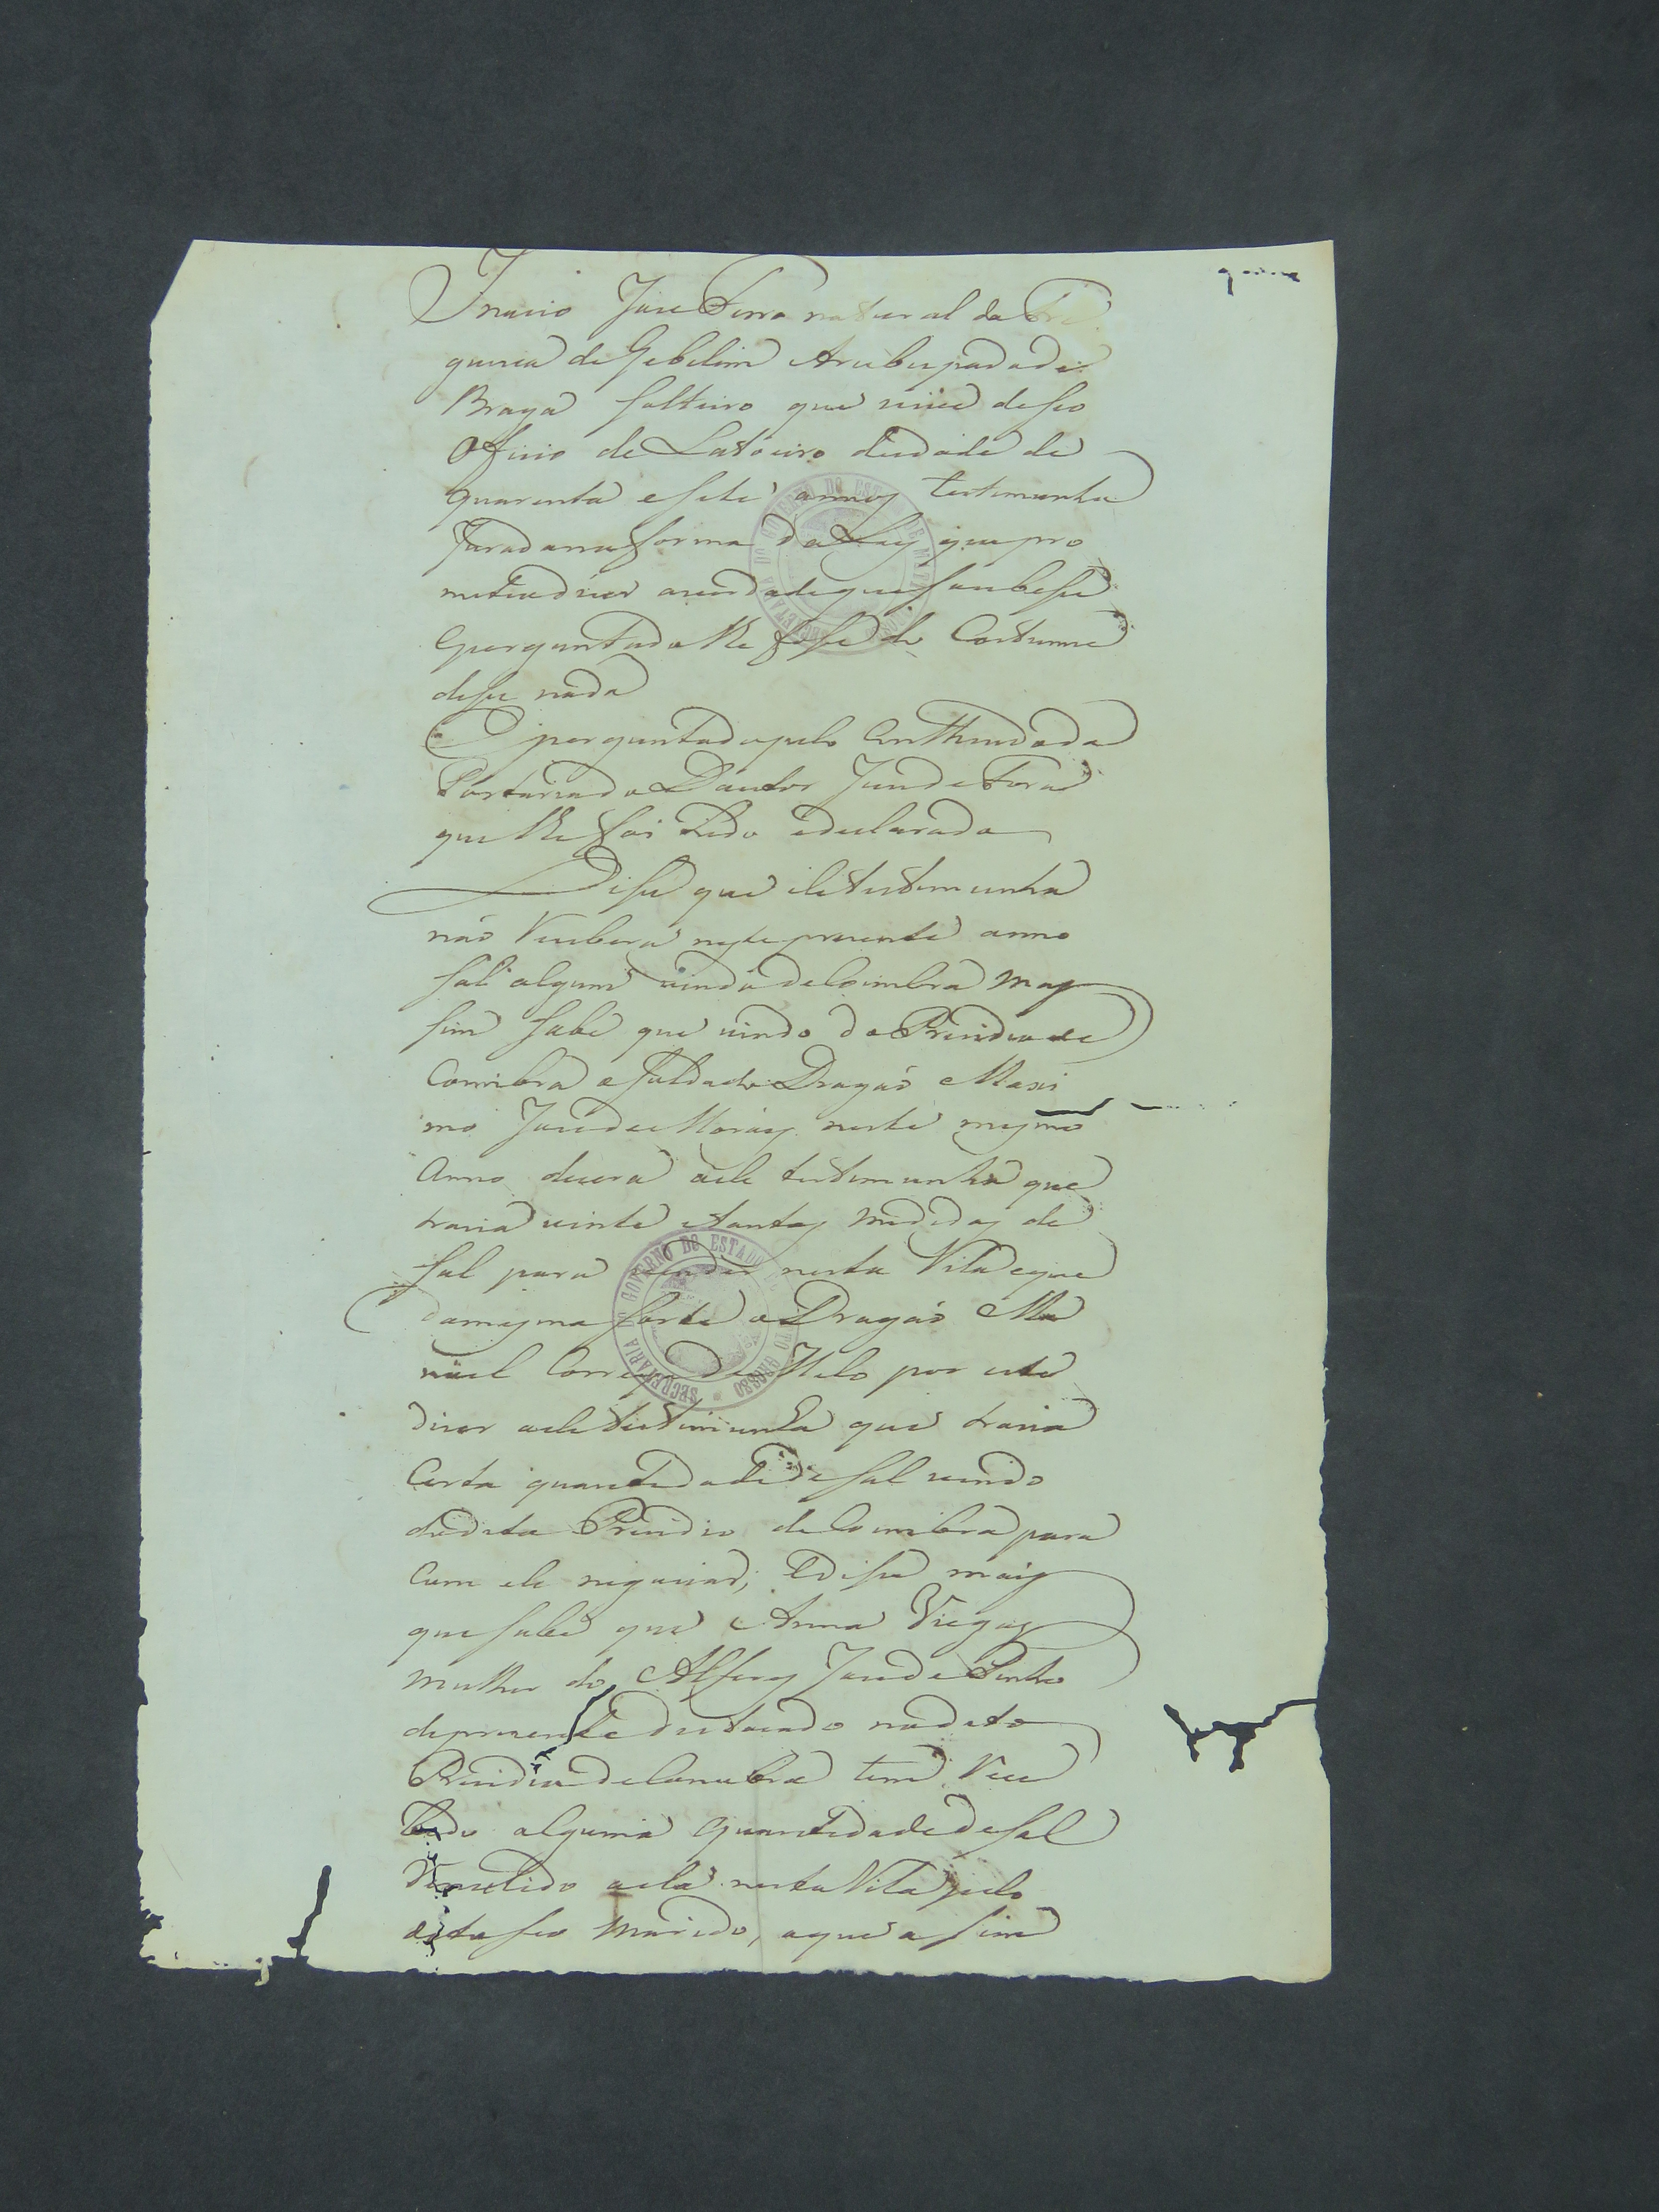 Inacio Joze Serra natural da Fre
guezia de Gebelim Arcebispado de
Braga solteiro que vive de seo
Oficio de Latoeiro de idade de
quarenta e sete annos testemunha
Jurada na forma da Ley que pro
meteu dizer a verdade que soubese
e perguntado lhe fose do Costume
dise nada
E perguntado pelo Contheudo da
Portaria do Doutor Juiz de Fora
que lhe foi Lido e declarado
Dise que ele testemunha
não Recebera neste prezente anno
sal algum vindo de Coimbra mas
sim sabe que vindo do Prezidio de
Coimbra o Soldado Dragão Maxi
mo Joze de Moraes neste mesmo
Anno dicera a ele testemunha que
trazia vinte e tantas medidas de
sal para vender nesta Vila e que
da mesma sorte o Dragão Ma
noel Correa de Melo por este
dizer a ele testemunha que trazia
Certa quantidade de sal vindo
do dito Prezidio de Coimbra para
Com ele negociar; E dise mais
que sabe que Anna Viegas
mulher do Alferes Joze de Pinho
de prezente destacado no dito
Prezidio de Coimbra tem Rece
bido alguma quantidade de sal
Remetido a ela nesta Vila pelo
dito seo marido, a que asim
SECRETARIA DO GOVERNO DO ESTADO DE MATTO GROSSO
SECRETARIA DO GOVERNO DO ESTADO DE MATTO GROSSO